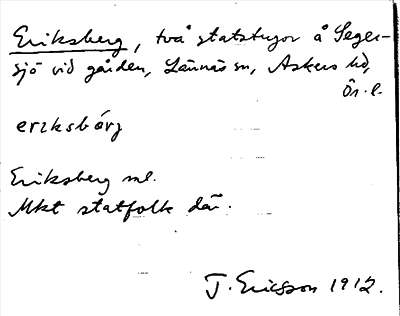 Eriksberg, två statstugor å Seger-
sjö vid gården, Lännäs sn, Askers hd,
Ör. l.
eriksbárj
Eriksberg ml.
Mkt statfolk där.
J. Ericsson 1912.